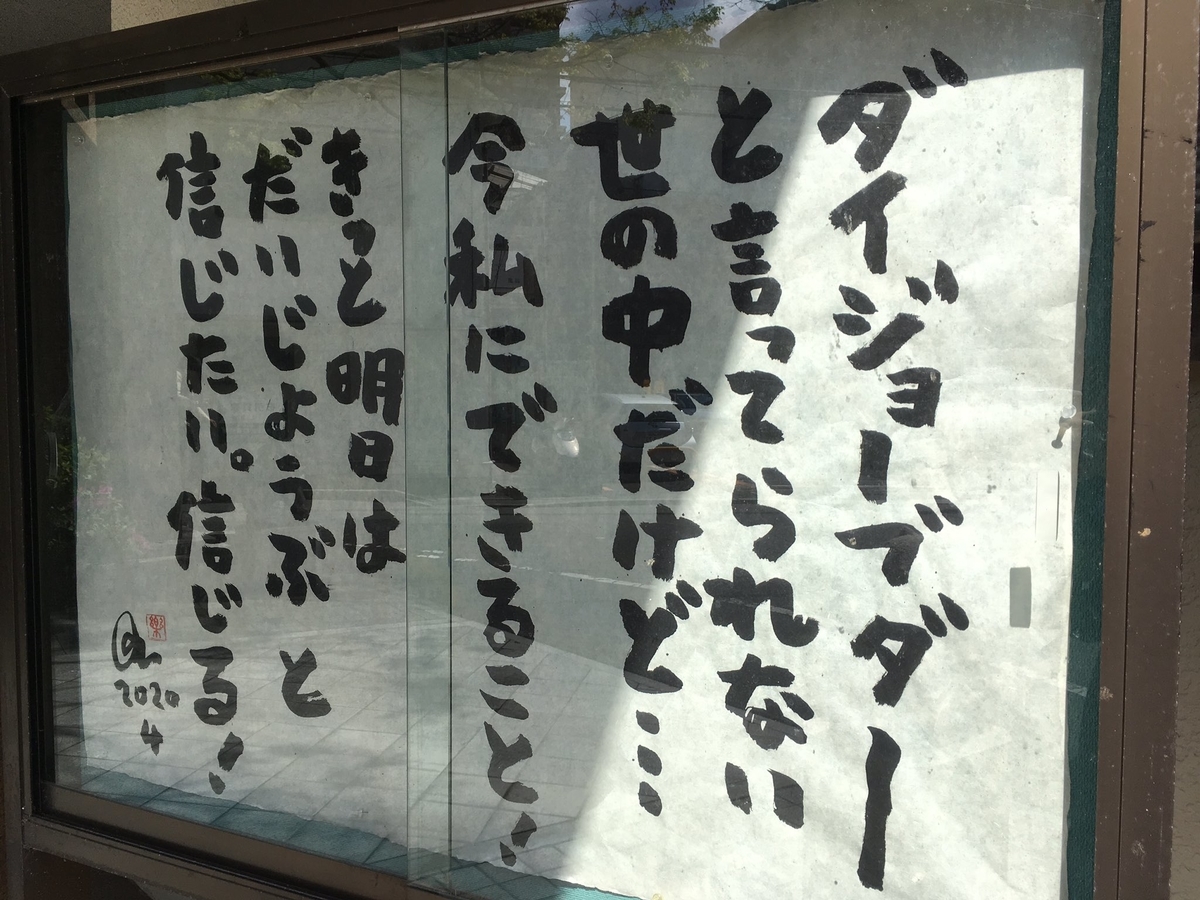 ダイジョーブダー
と言ってられない
世の中だけど…
今私にできること!
きっと明日は
だいじょうぶ と
信じたい。信じる!
2020
4